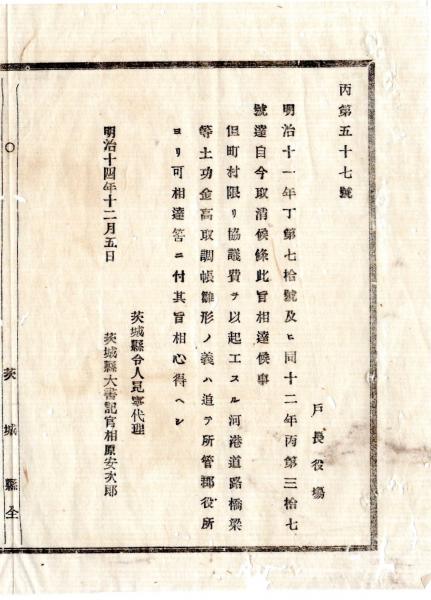 丙第五十七號
戸長役塲
明治十一年丁第七拾號及ヒ同十二年丙第三拾七
號達自今取消候條此旨相達候事
但町村限リ協議費ヲ以起工スル河港道路橋梁
等土功金高取調帳雛形ノ義ハ追テ所管郡役所
ヨリ可相達筈ニ付其旨相心得ヘシ
茨城縣令人見寧代理
明治十四年十二月五日　茨城縣大書記官相原安次郎
茨城縣